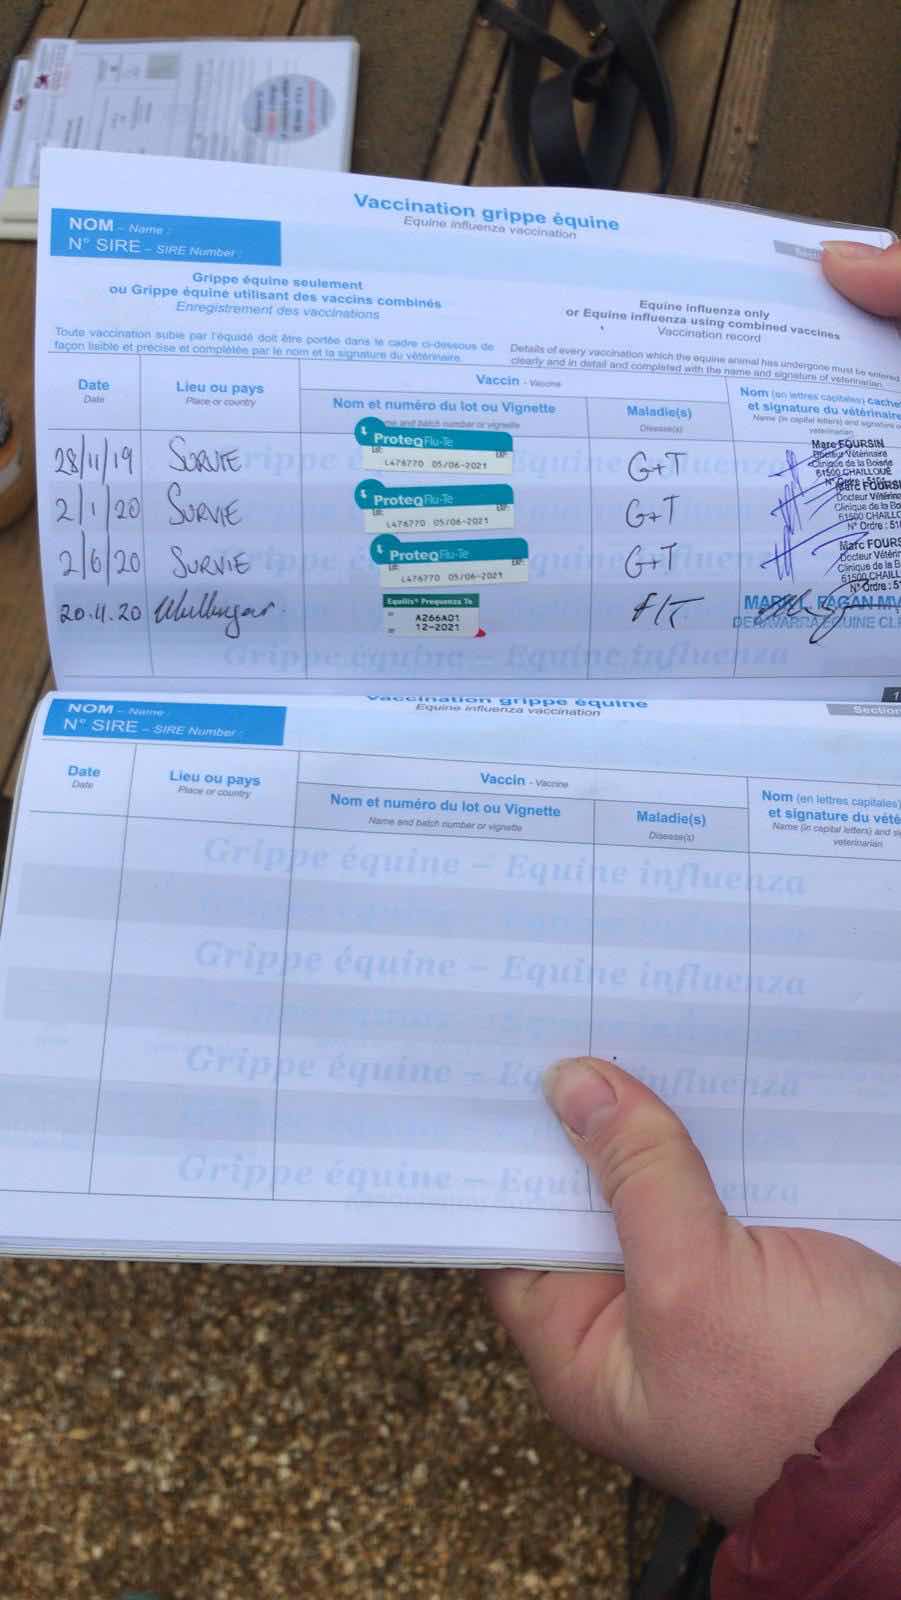 Vaccination grippe équine
Equine influenza vaccination
NOM – Name :
N° SIRE – SIRE Number :
Grippe équine seulement
ou Grippe équine utilisant des vaccins combinés
Enregistrement des vaccinations
Equine influenza only
or Equine influenza using combined vaccines
Vaccination record
Toute vaccination subie par l'équidé doit être portée dans le cadre ci-dessous de
façon lisible et précise et complétée par le nom et la signature du vétérinaire.
Details of every vaccination which the equine animal has undergone must be entered
clearly and in detail and completed with the name and signature of veterinarian.
Date
Date
Lieu ou pays
Place or country
Vaccin - Vaccine
Nom et numéro du lot ou Vignette
and batch number or vignette
Maladie(s)
Disease(s)
Nom (en lettres capitales) cachet
et signature du vétérinaire
Name (in capital letters) and signature of
veterinarian
28/11/19 SURVIE ProteqFlu-Te L476770 05/06-2021 G+T
Marc FOURSIN
Docteur Vétérinaire
Clinique de la Boisrie
61500 CHAILLOUÉ
2/1/20 SURVIE ProteqFlu-Te L476770 05/06-2021 G+T
Marc FOURSI
Docteur Vétérina
Clinique de la Bo
61500 CHAILL
N° Ordre : 510
2/6/20 SURVIE ProteqFlu-Te L476770 05/06-2021 G+T
Marc FOURS
Docteur Vétérin
Clinique de la
61500 CHAILL
N° Ordre : 51
20.11.20 Mullingar Equilis® Prequenza Te
A266A01
12-2021
F/T
MARK L. FAGAN MV
DERAVARRA EQUINE CL
Grippe équine – Equine influenza
Vaccination grippe équine
Equine influenza vaccination
Section
NOM – Name :
N° SIRE – SIRE Number :
Date
Date
Lieu ou pays
Place or country
Vaccin - Vaccine
Nom et numéro du lot ou Vignette
Name and batch number or vignette
Maladie(s)
Disease(s)
Nom (en lettres capitales)
et signature du vété
Name (in capital letters) and si
veterinarian
Grippe équine – Equine influenza
Grippe équine – Equine influenza
Grippe équine – Eq influenza
Grippe équine – Equi enza